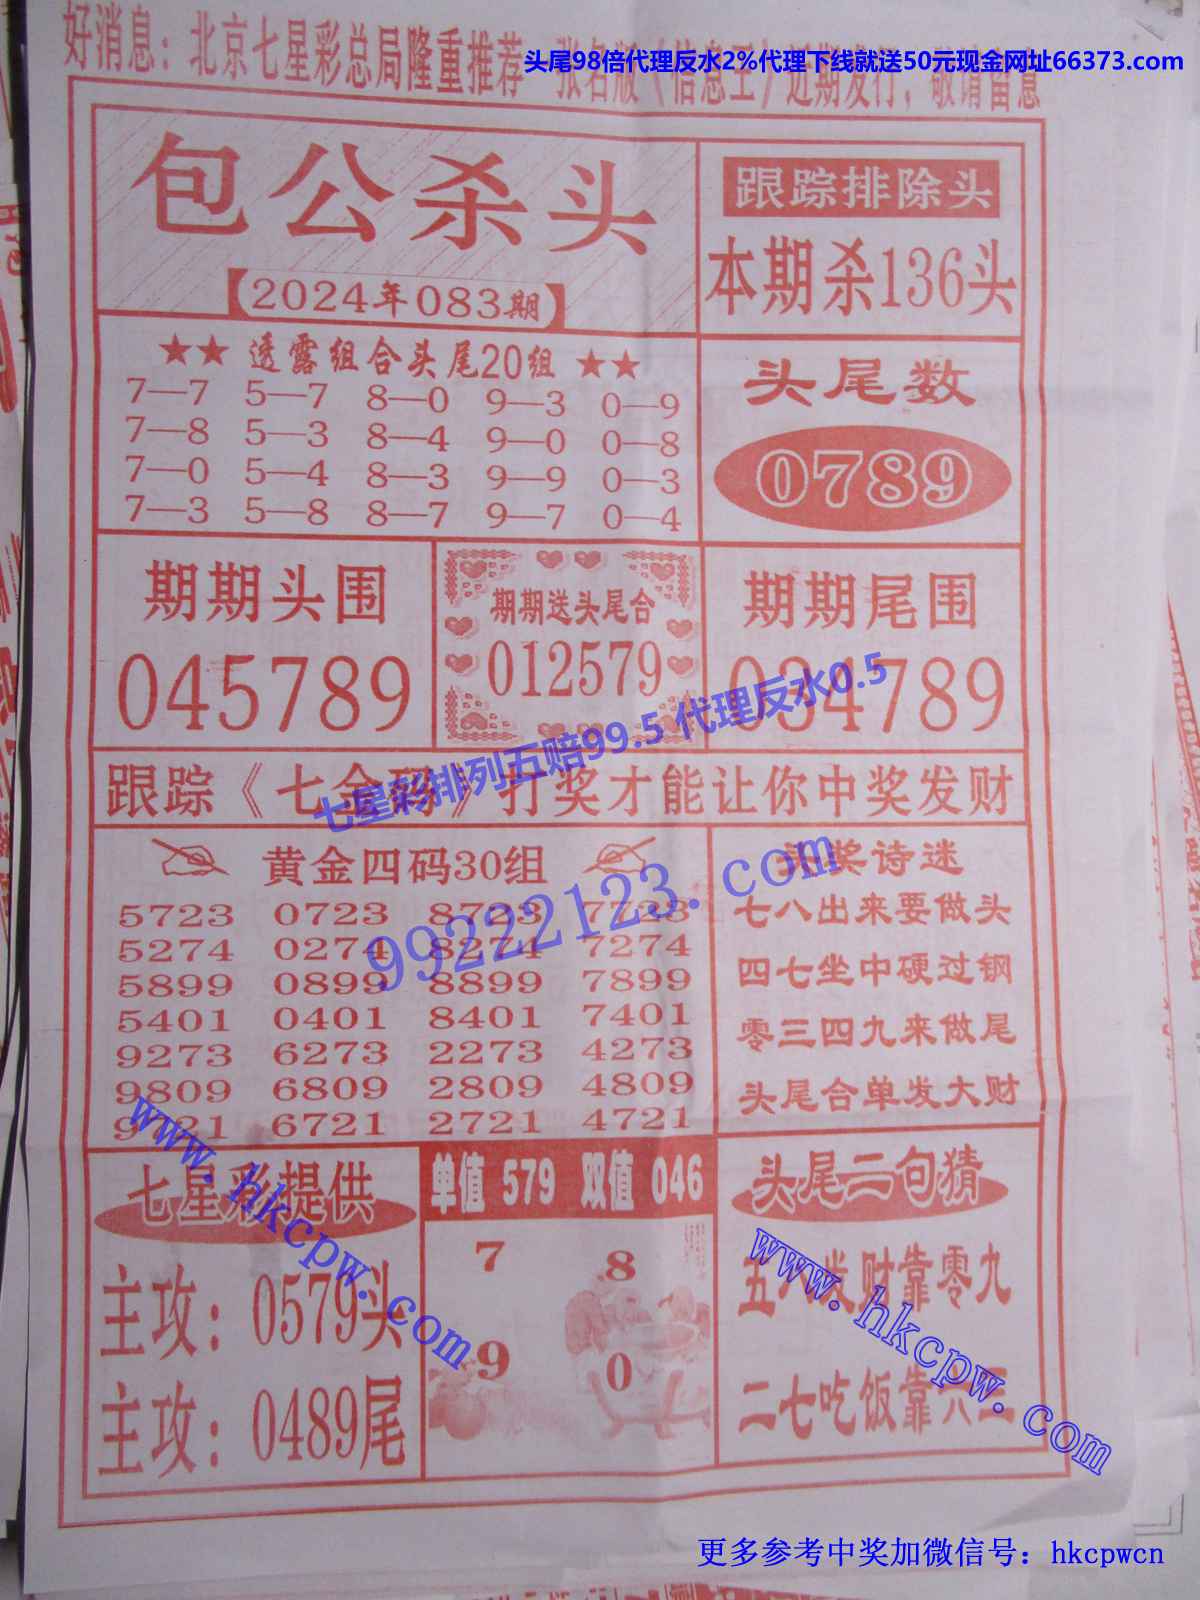 好消息：北京七星彩总局隆重推荐 张名版《信息王》近期发行，敬请留意
头尾98倍代理反水2%代理下线就送50元现金网址66373.com
包公杀头
【2024年083期】
跟踪排除头
本期杀136头
★★ 透露组合头尾20组 ★★
7—7 5—7 8—0 9—3 0—9
7—8 5—3 8—4 9—0 0—8
7—0 5—4 8—3 9—9 0—3
7—3 5—8 8—7 9—7 0—4
头尾数
0789
期期头围
045789
期期送头尾合
012579
期期尾围
034789
七星彩排列五赔99.5 代理反水0.5
跟踪《七金码》打奖才能让你中奖发财
黄金四码30组
5723 0723 8723 7723
5274 0274 8274 7274
5899 0899 8899 7899
5401 0401 8401 7401
9273 6273 2273 4273
9809 6809 2809 4809
9721 6721 2721 4721
99222123.com
头奖诗迷
七八出来要做头
四七坐中硬过钢
零三四九来做尾
头尾合单发大财
七星彩提供
主攻：0579头
主攻：0489尾
www.hkcpw.com
单值 579 双值 046
7 8
9 0
头尾二句猜
五八发财靠零九
二七吃饭靠六三
www.hkcpw.com
更多参考中奖加微信号：hkcpwcn